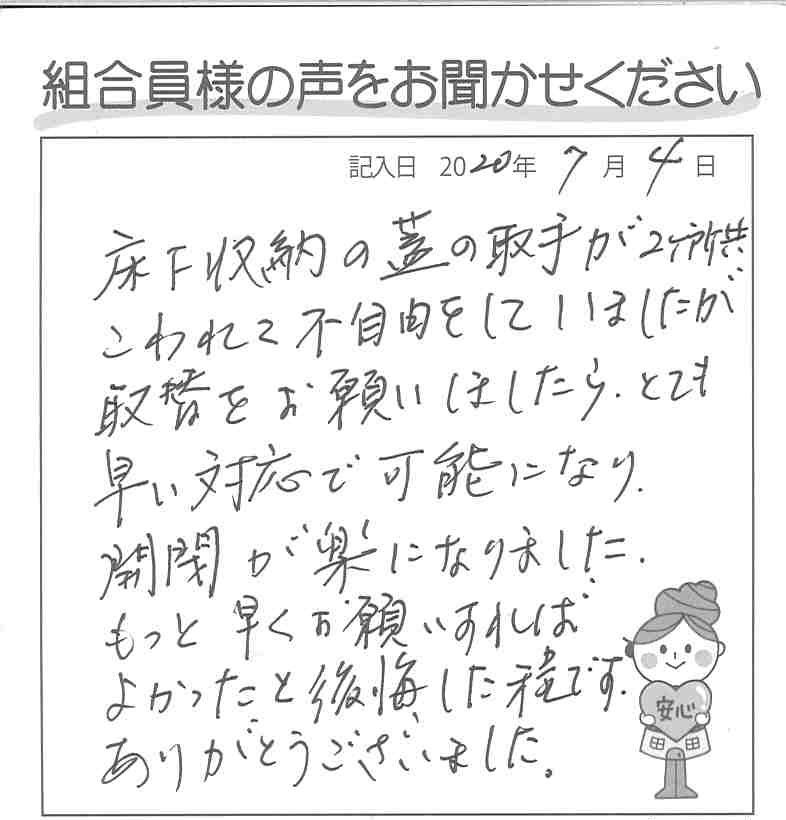 組合員様の声をお聞かせください
記入日 2020年 7月 4日
床下収納の蓋の取手が2ヶ所共
こわれて不自由をしていましたが
取替をお願いしましたら、とても
早い対応で可能になり、
開閉が楽になりました。
もっと早くお願いすれば
よかったと後悔した程です。
ありがとうございました。
安心